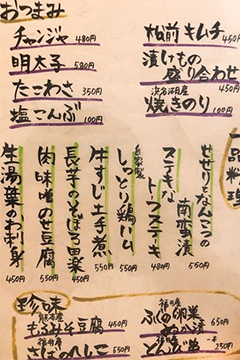 おつまみ
チャンジャ 480円
明太子 580円
たこわさ 350円
塩こんぶ 100円
松前キムチ 450円
漬けもの
盛り合わせ 450円
浜名湖産
焼きのり 100円
一品料理
せせりとなんこつの
南蛮漬 550円
ステキな
トーフステーキ 480円
自家製
しっとり鶏ハム 550円
牛すじ土手煮 550円
長芋のそぼろ田楽 450円
肉味噌のせ豆腐 450円
生湯葉のお刺身 450円
珍味
もろみそ豆腐 450円
福井産
さばのへしこ 550円
ふぐの卵巣
ぬか漬 650円